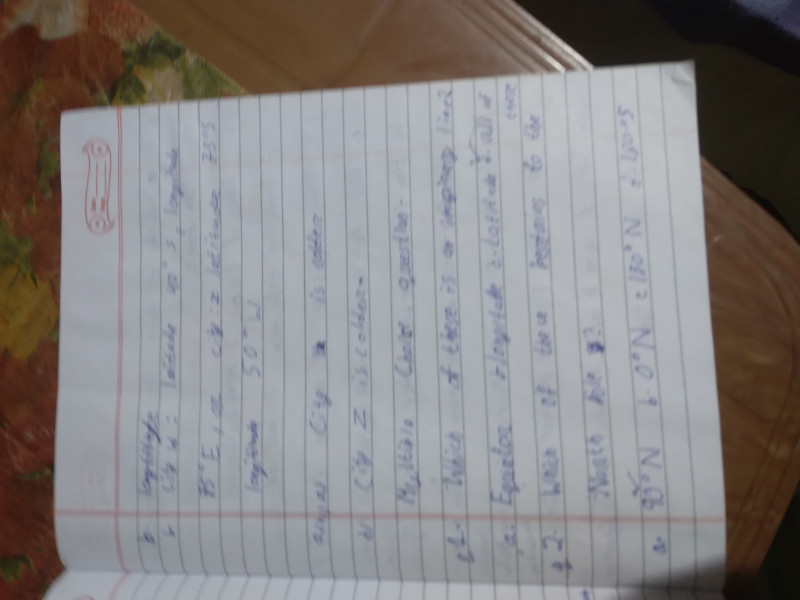 b. longitude
b City W: latitude 40° S, longitude
75° E, or city: z latitude 75°S
longitude 50° W
ans, a) City is colder
b) City Z is colder.
Multiple Choice question.
Q1. Which of these is a imaginary line?
a. Equator b. longitude c. Latitude d. all of these
Q 2. Which of these pertains to the
North pole?
a. 90° N b. 0° N c 180° N d. 180° S